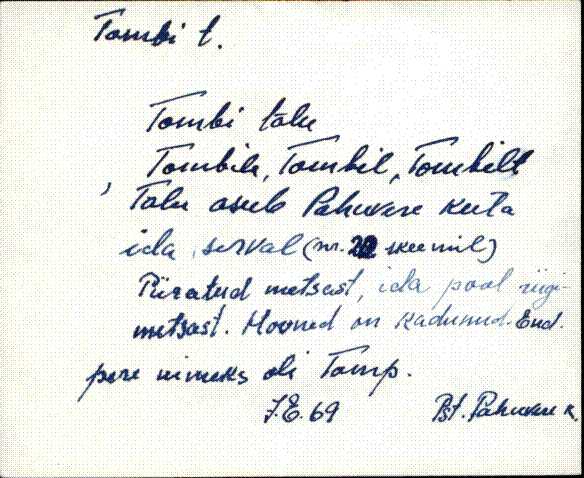 Tombi t.
Tombi talu
Tombile, Tombil, Tombilt
Talu asub Pahuvere küla
ida serval (nr. 22 skeemil)
Piiratud metsast, ida pool riigi-
metsast. Hooned on kadunud. End.
pere nimeks oli Tomp.
J.E. 69 Pst. Pahuvere k.